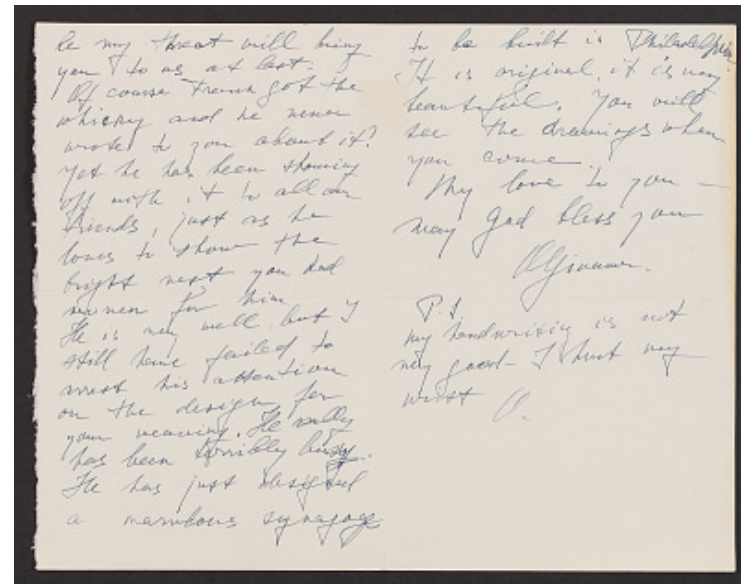 be my threat will bring
you to us at last.
Of course Frank got the
whisky and he never
wrote to you about it?
Yet he has been showing
off with it to all our
friends, just as he
loves to show the
bright vest you had
woven for him
He is very well, but I
still have failed to
arrest his attention
on the design for
your weaving. He really
has been terribly busy.
He has just designed
a marvelous synagoge
to be built in Philadelphia
It is original, it is very
beautiful. You will
see the drawings when
you come.
My love to you —
may God bless you
P.S
my handwriting is not
very good – I hurt my
wrist O.